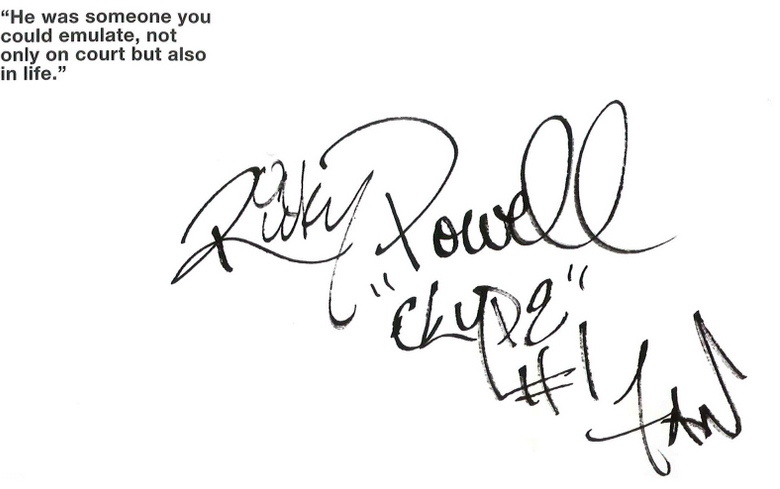 “He was someone you
could emulate, not
only on court but also
in life.”
Ricky Powell
"CLYDE"
#1 FAN